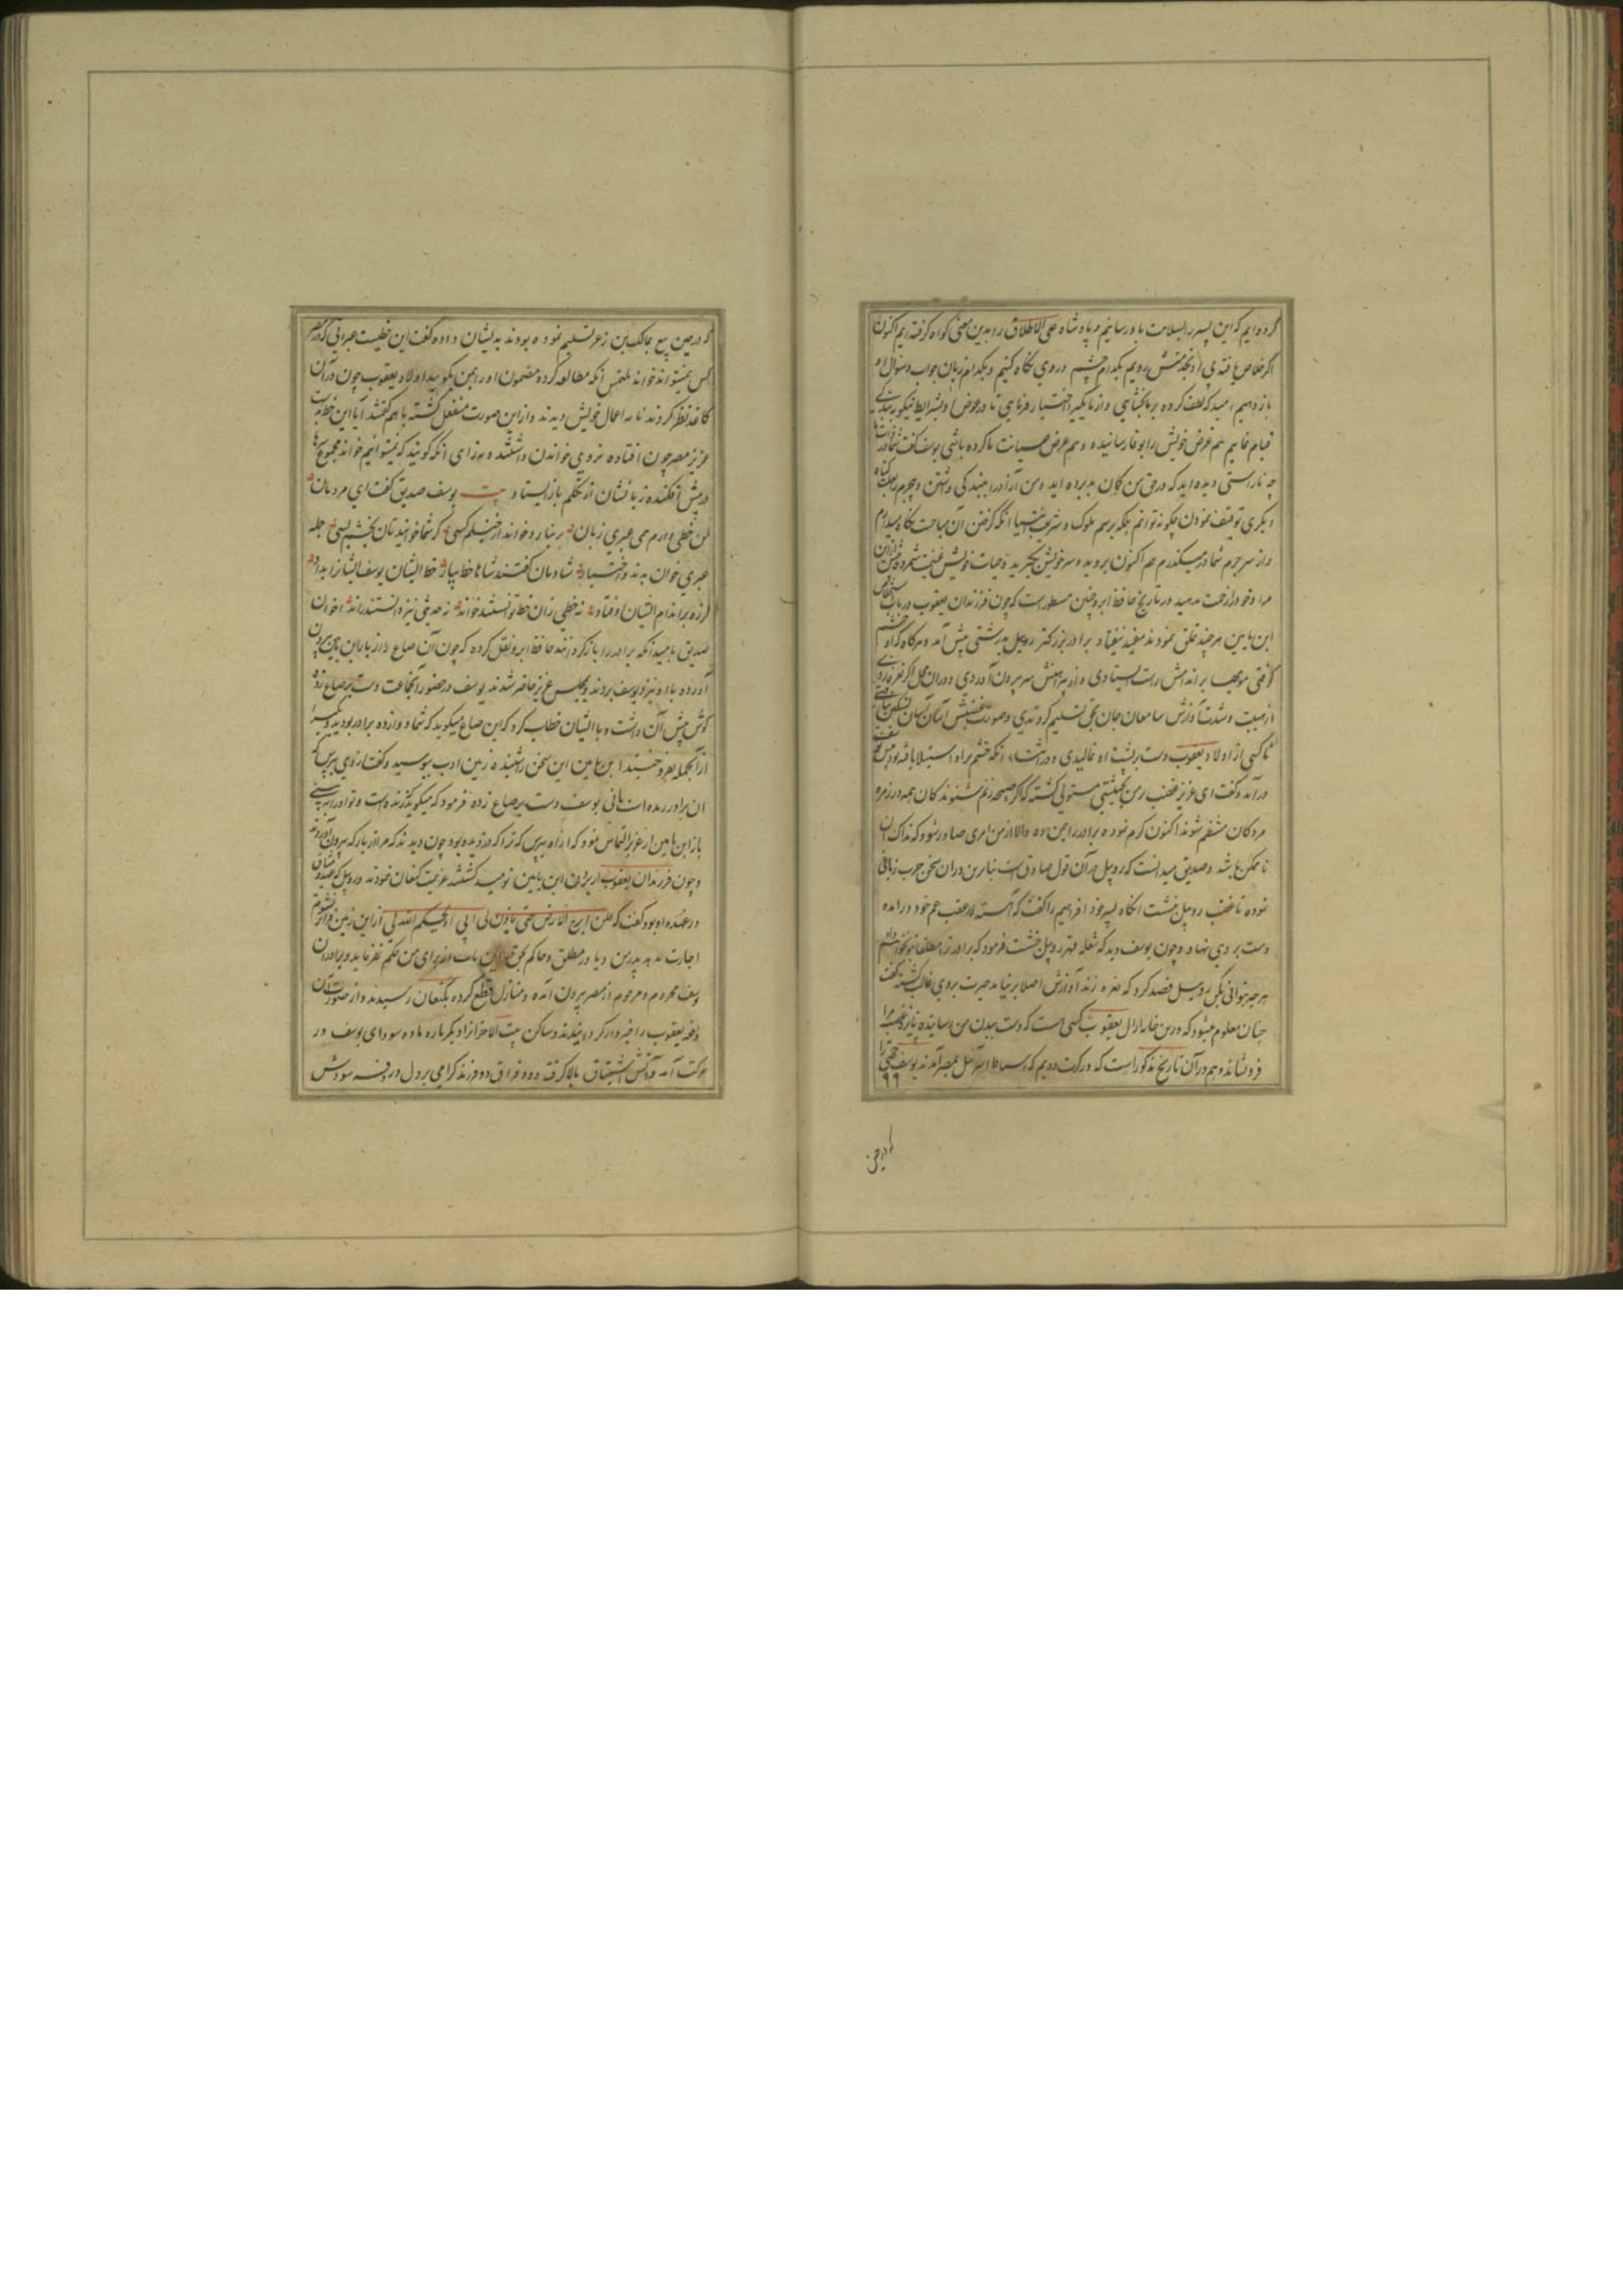 کرده ایم که این پسر را بسلامت باو رسانیم و پادشاه علی الاطلاق را بدین معنی کواه کرفته ایم اکنون
اکر خلاص نایافته بی او بخدمتش رویم بکدام چشم در وی نکاه کنیم و بکدام زبان جواب و سؤال او
باز دهیم امید که لطف کرده بر ما بخشایی و از ما یکی را اختیار فرمایی تا در عوض او بشرایط نیکو بندکی
قیام نماییم هم غرض خویش را بوفا رسانیده و هم عرض صیانت ما کرده باشی یوسف کفت شما در ذات ما
چه ناراستی دیده اید که در حق من کمان بد برده اید و من آزاد را ببندکی داشتن و مجرم را بیکناه
از سر جرم شما در میکذرم هم اکنون بروید و سر خویش بکیرید و حیات خویش غنیمت شمرده
مرا و خود را زحمت مدهید در تاریخ حافظ ابرو چنین مسطور است که چون فرزندان یعقوب در باب استخلاص
ابن یامین هر چند تملق نمودند مفید نیفتاد برادر بزرکتر روبیل بدرشتی پیش آمد و هرکاه که او خشم
کرفتی مویها بر اندامش راست ایستادی و از پیراهنش سر بیرون آوردی و در آن محل اکر نعره زدی
از هیبت و شدت آوازش سامعان جان بحق تسلیم کردندی و صورت غضبش آسان آسان تسکین نیافتی
تا کسی از اولاد یعقوب دست بر پشت او نمالیدی و در اثناء آنکه خشم بر او استیلا یافته بود پیش یوسف
در آمد و کفت ای عزیز غضب بر من بحیثیتی مستولی کشته که اکر صیحه زنم شنوندکان همه در زمره
مردکان منتظم شوند اکنون کرم نموده برادر را بمن ده والا از من امری صادر شود که تدارک آن
ناممکن باشد و صدیق میدانست که روبیل در آن قول صادق است بنا برین در آن سخن چرب زبانی
نموده تا غضب روبیل نشست آنکاه پسر خود افرهیم را کفت که آهسته از عقب عم خود در آمده
دست بر وی نهاد و چون یوسف دید که شعله قهر روبیل نشست فرمود که برادر ترا مطلقا نخواهم داد
هر چه بتوانی بکن روبیل قصد کرد که نعره زند آوازش اصلا بر نیامد حیرت بر وی غالب کشته کفت
چنان معلوم میشود که درین خانه از آل یعقوب کسی هست که دست ببدن من رسانیده نایره غضب مرا
فرو نشانده و هم در آن تاریخ مذکور است که در کرت دویم که اسباط اسرائیل بمصر آمدند یوسف حجتی را
۹۹
که در حین
که در حین بیع بمالک بن زعر تسلیم نموده بودند بدیشان داده کفت این خطیست عبرانی که در مصر
کس نمیتواند خواند ملتمس آنکه مطالعه کرده مضمون او را بمن بکویید اولاد یعقوب چون در آن
کاغذ نظر کردند نامه اعمال خویش دیدند و از این صورت منفعل کشته با هم کفتند آیا این خط بدست
عزیز مصر چون افتاده نه روی خواندن داشتند و نه رای آنکه کویند که نمیتوانیم خواند مجموع سرها
در پیش افکنده زبانشان از تکلم باز ایستاد بیت یوسف صدیق کفت ای مردمان
من خطی دارم همی عبری زبان بر نیارد خواند از خیلم کسی کر شما خوانید نان بخشم بسی جمله
عبری خوان بدند و اختیار شادمان کفتند شاها خط بیار خط ایشان یوسف ایشانرا بداد
لرزه بر اندام ایشان اوفتاد نه خطی زان خط توانستند خواند نه حدیثی نیز دانستند راند اخوان
صدیق بامید آنکه برادر را باز کردانند حافظ ابرو نقل کرده که چون آن صاع را از بار ابن یامین بیرون
آوردند با او نزد یوسف بردند و بمجلس عزیز حاضر شدند یوسف در حضور آنجماعت دست بر صاع زد
کوش پیش آن داشت و با ایشان خطاب کرد که این صاع میکوید که شما دوازده برادر بودید و یکی را
از آنجمله بفروختید ابن یامین این سخن را شنیده زمین ادب ببوسید و کفت از وی بپرس که
آن برادر زنده است یا نی یوسف دست بر صاع زده فرمود که میکوید زنده است و تو او را ببینی
باز ابن یامین از عزیز التماس نمود که از او بپرس که ترا که دزدیده بود چون دیدند که مرا از بار که بیرون آوردند
و چون فرزندان یعقوب از بردن ابن یامین نومید کشتند عزیمت کنعان نمودند و روبیل که میثاق
در عهده او بود کفت که فلن ابرح الارض حتی یاذن لی ابی او یحکم الله لی از این زمین فراتر نشوم
اجازت ندهد پدر من و یا داور مطلق و حاکم بحق در این باب از برای من حکم نفرماید و برادران
یوسف محروم و مرحوم از مصر بیرون آمده و منازل قطع کرده بکنعان رسیدند و از صورت آن
واقعه یعقوب را خبردار کردانیدند و ساکن بیت الاحزانرا دیکر باره ماده سودای یوسف در
حرکت آمد و آتش اشتیاق بالا کرفت و درد فراق دو فرزند کرامی بر دل